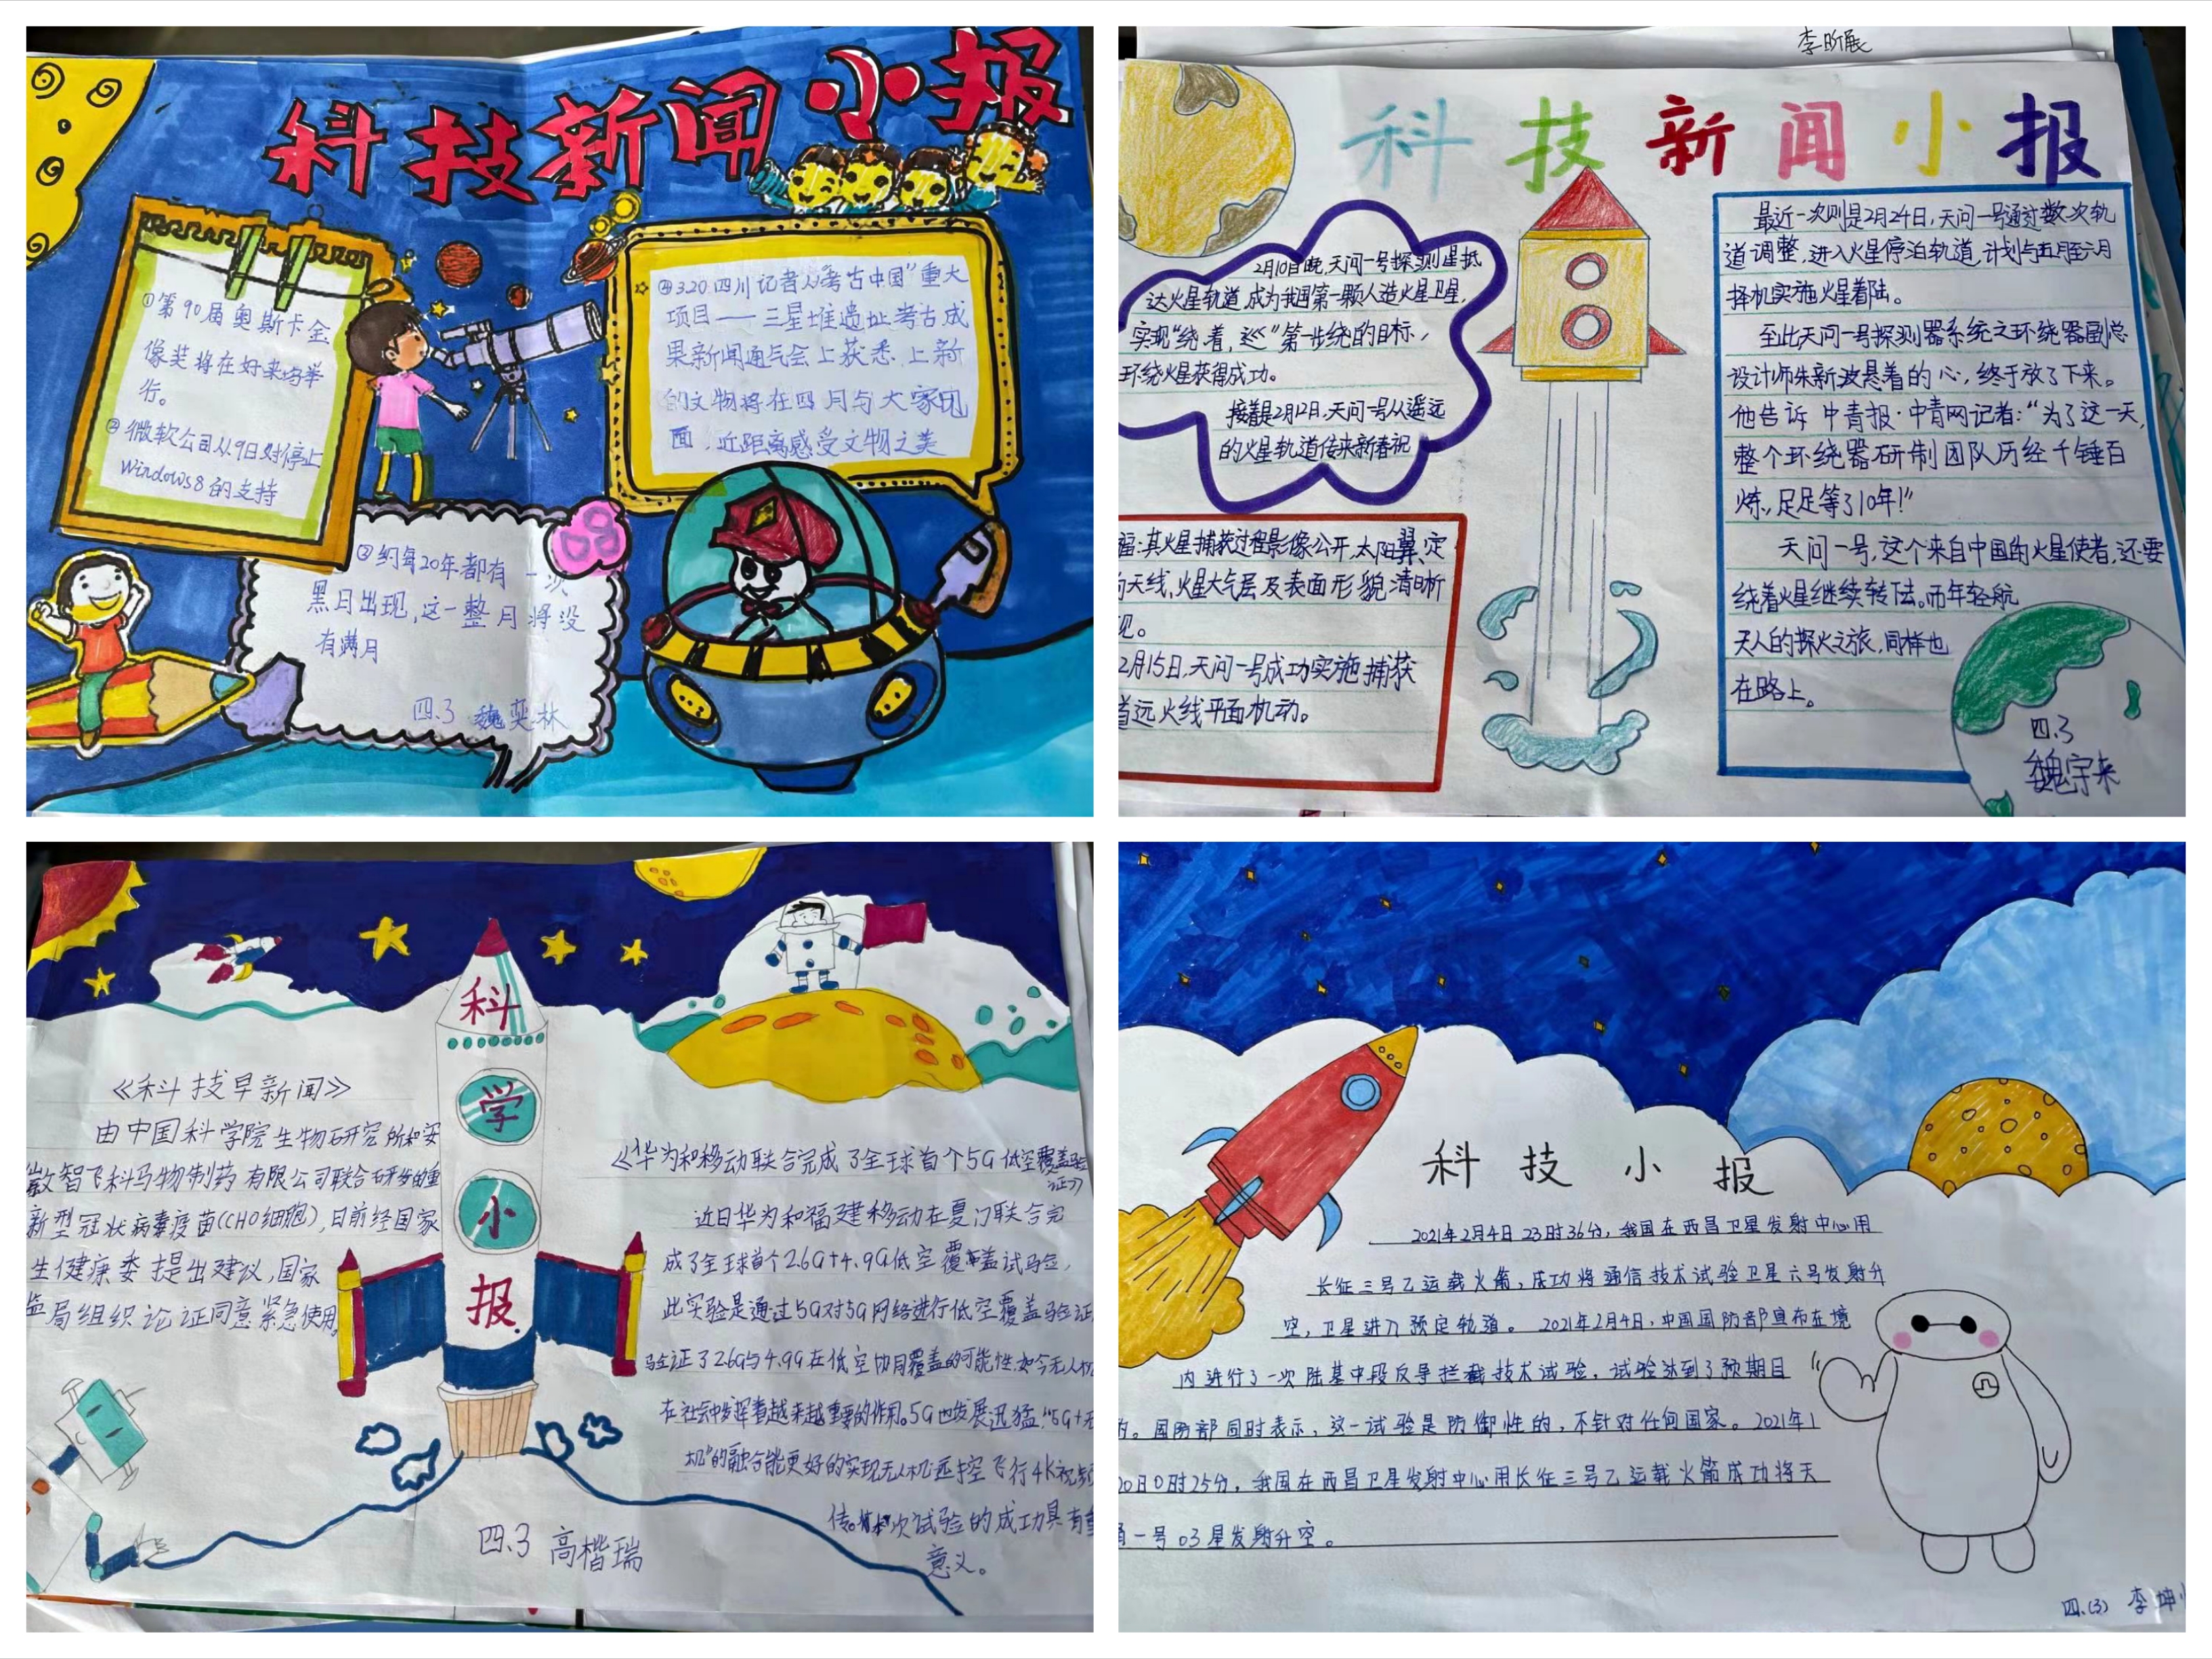 科技新闻小报
①第90届奥斯卡金
像奖将在好来坞举
行。
②微软公司从9日对停止
Windows8的支持
④3.20.四川记者从“考古中国”重大
项目——三星堆遗址考古成
果新闻通气会上获悉,上新
的文物将在四月与大家见
面,近距离感受文物之美
③约每20年都有一次
黑月出现,这一整月将没
有满月
四.3 魏奕林
李昕展
科技新闻小报
2月10日晚,天问一号探测星抵
达火星轨道,成为我国第一颗人造火星卫星,
实现“绕着,巡”第一步绕的目标,
环绕火星获得成功。
接着是2月12日,天问一号从遥远
的火星轨道传来新春祝
福:其火星捕获过程影像公开,太阳翼、定
向天线,火星大气层及表面形貌清晰
见。
2月15日,天问一号成功实施捕获
首远火线平面机动。
最近一次则是2月24日,天问一号通过数次轨
道调整,进入火星停泊轨道,计划与五月至六月
择机实施火星着陆。
至此天问一号探测器系统之环绕器副总
设计师朱新波悬着的心,终于放了下来。
他告诉中青报·中青网记者:“为了这一天,
整个环绕器研制团队历经千锤百
炼,足足等了10年!”
天问一号,这个来自中国的火星使者,还要
绕着火星继续转法。而年轻航
天人的探火之旅,同样也
在路上。
四.3
魏宇来
科
学
小
报
《科技早新闻》
由中国科学院生物研究所和安
徽智飞科马物制药有限公司联合研发的重
新型冠状病毒疫苗(CHO细胞),日前经国家
生健康委提出建议,国家
监局组织论证同意紧急使用
《华为和移动联合完成了全球首个5G低空覆盖验
证》
近日华为和福建移动在厦门联合完
成了全球首个2.6G+4.9G低空覆盖试验,
此实验是通过5G对5G网络进行低空覆盖验证,
验证了2.6G与4.9G在低空协同覆盖的可能性.如今无人机
在社会中发挥着越来越重要的作用。5G也发展迅猛.“5G+无
机”的融合能更好的实现无人机远控飞行4K视频
传。本次试验的成功具有重
意义。
四.3 高楷瑞
科技小报
2021年2月4日23时36分,我国在西昌卫星发射中心用
长征三号乙运载火箭,成功将通信技术试验卫星六号发射升
空,卫星进入预定轨道。2021年2月4日,中国国防部宣布在境
内进行了一次陆基中段反导拦截技术试验,试验达到了预期目
的。国防部同时表示,这一试验是防御性的,不针对任何国家。2021年1
20日0时25分,我国在西昌卫星发射中心用长征三号乙运载火箭成功将天
通一号03星发射升空。
四.(3) 李坤